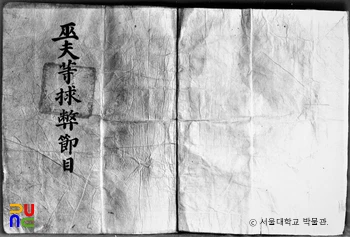 巫夫等捄弊節目
© 서울대학교 박물관.